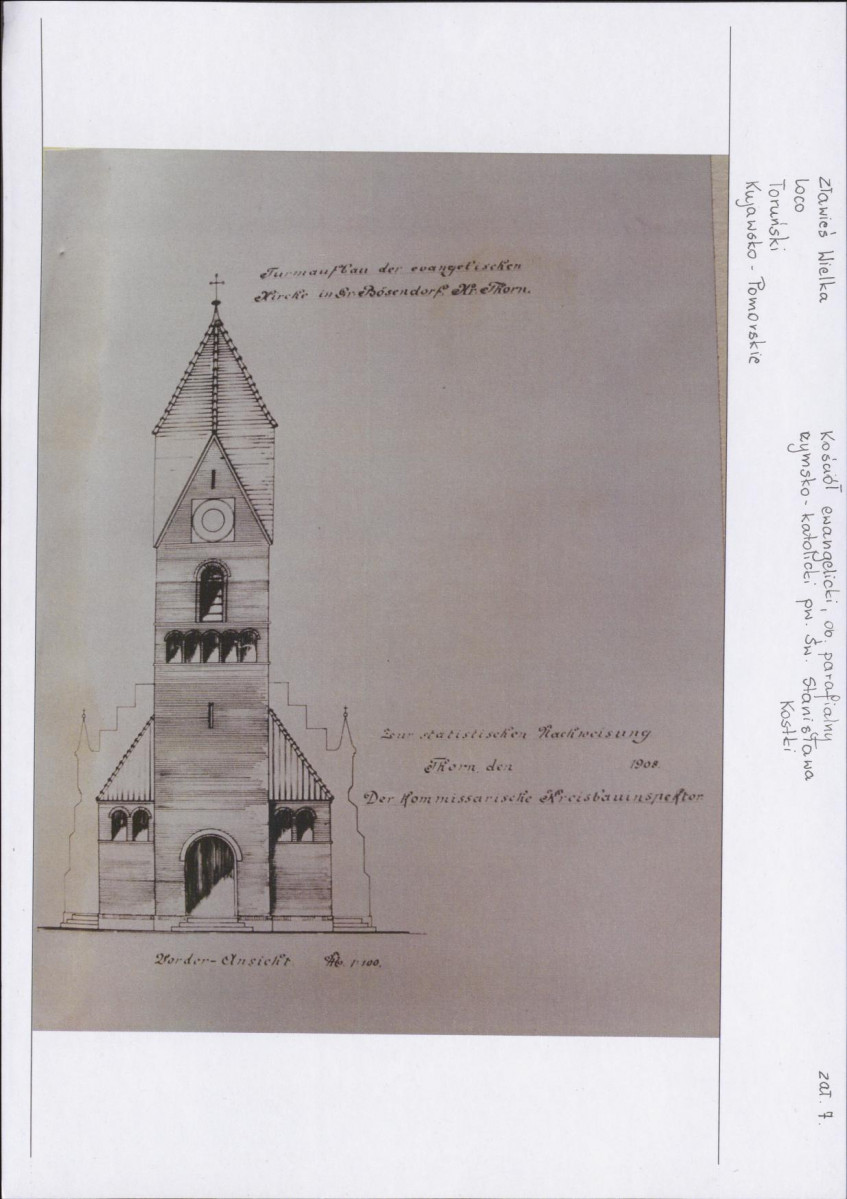 Turmaufbau der evangelischen
Kirche in Gr. Bösendorf. Kr. Thorn.
Zur statistischen Nachweisung
Thorn, den 1908.
Der kommissarische Kreisbauinspektor
Vorder-Ansicht. M. 1:100.
Zławieś Wielka
Loco
Toruński
Kujawsko-Pomorskie
Kościół ewangelicki, ob. parafialny
rzymsko-katolicki pw. Św. Stanisława
Kostki
zał. 7.